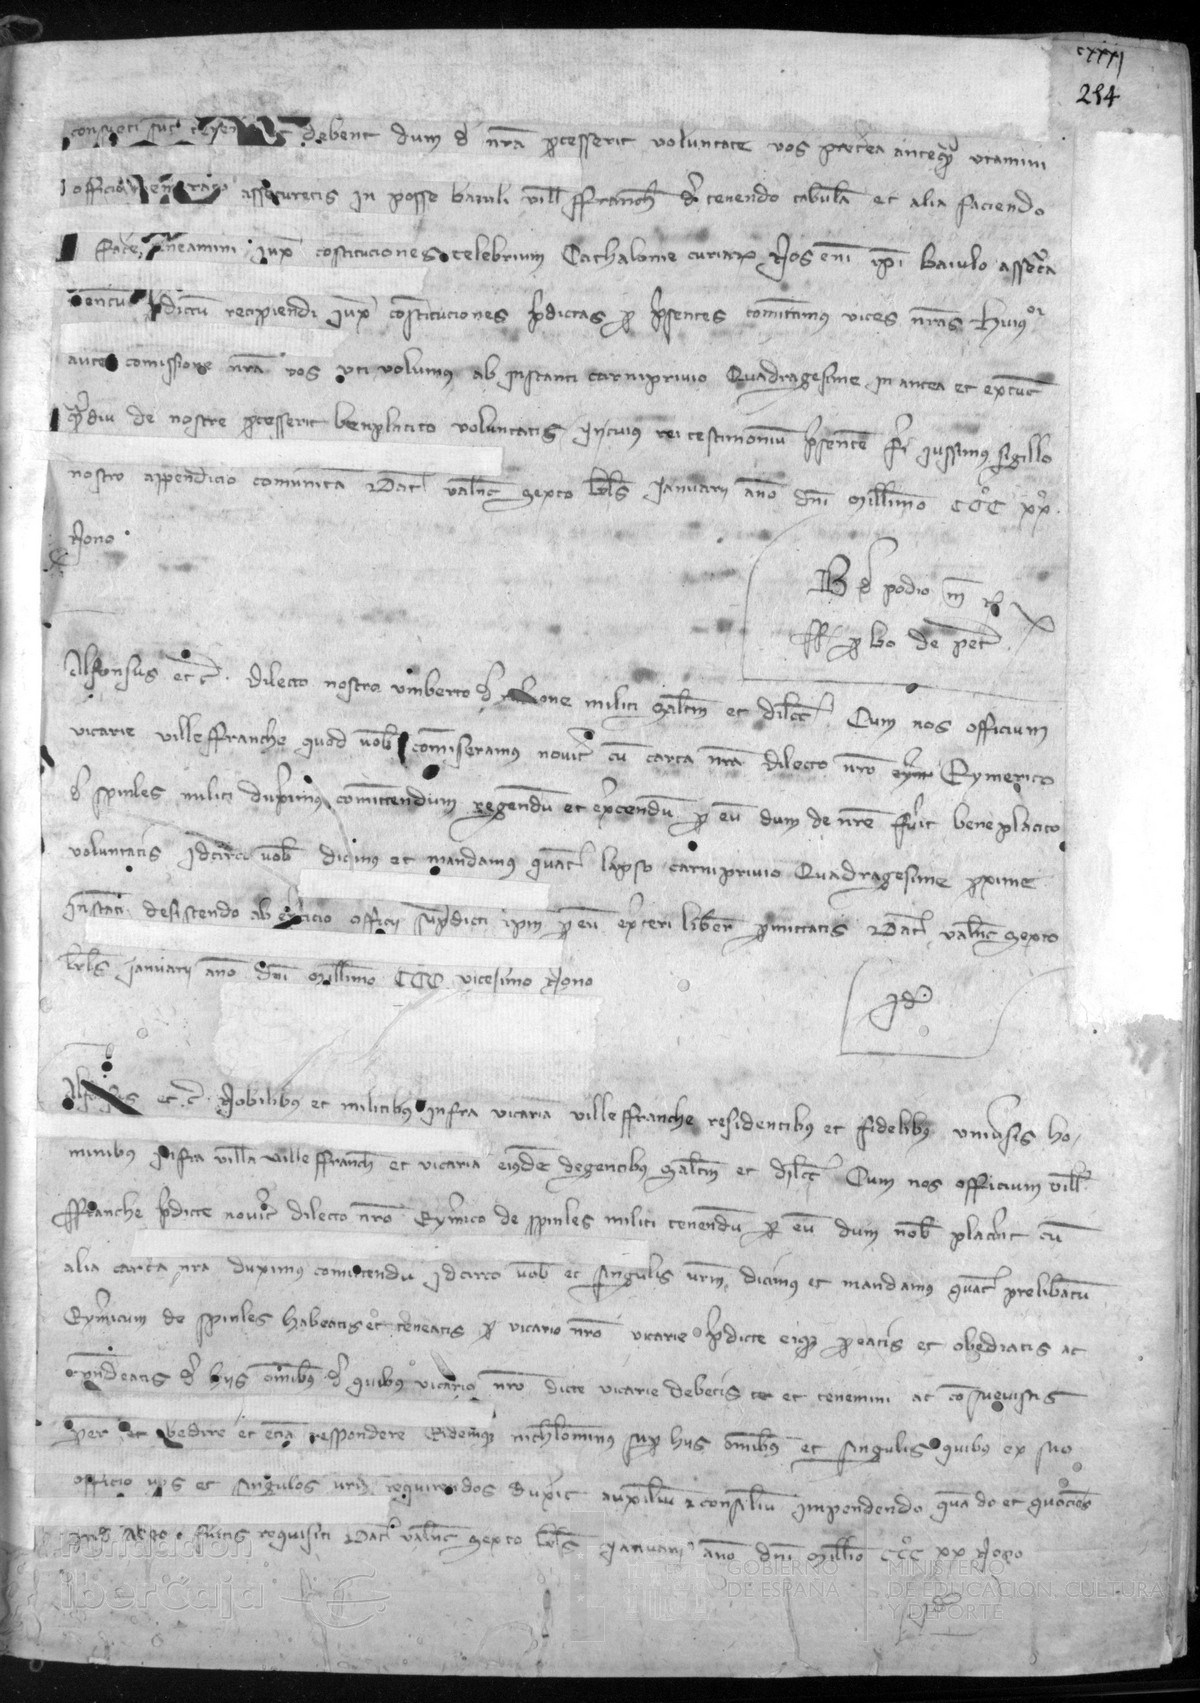 cxxxj
254
consueti sunt debent dum d nra pcesserit voluntate vos pterea anteq utamini
officio assecuretis in posse baiuli vill ffranch d tenendo tabula et alia faciendo
teneamini iux costituciones celebrium Cathalonie curiar Nos eni ipi baiulo assecra
dictu recipiendi iux costituciones pdictas p psentes comittimus vices nras huius
aute comissione nra vos uti volumus ab instanti carniprivio Quadragesime in antea et extunc
qdiu de nostre pcesserit benplacito voluntatis In cuius rei testimoniu psente fi iussimus sigillo
nostro appendicio comunita Dat Valnc sexto kls Januarii ano dni Millimo CCC xx
Nono
B d podio m R
ff p Bo de pet
Alfonsus etc dilecto nostro umberto d one militi saltm et dilcc Cum nos officium
vicarie Villeffranche quod vob comiseramus novit cu carta nra dilecto nro Eymerico
d spinles militi duximus comittendum regendu et excendu p eu dum de nre fuit beneplacito
voluntatis Idcirco vob dicimus et mandamus quat lapso carniprivio Quadragesime pxime
instati desistendo ab excicio officii supdicti ipm p eu exceri liber pmittatis Dat Valnc sexto
kls Januarii ano dni Millimo CCC vicesimo Nono
Id
Alfonsus etc Nobilibus et militibus infra vicaria villeffranche residentibus et fidelibus univsis ho
minibus infra villa villeffranch et vicaria eiusde degentibus Saltm et dilcc Cum nos officium vill
ffranche pdicte novit dilecto nro Eymico de spinles militi tenendu p eu dum nob placuit cu
alia carta nra duximus comittendu Idcirco vob et singulis urm dicimus et mandamus quat prelibatu
Eymicum de spinles habeatis et teneatis p vicario nro vicarie pdicte eiq peatis et obediatis ac
rndeatis d hiis omibus d quibus vicario nro dicte vicarie debetis et tenemini ac cosuevistis
per et obedire et etia respondere Eidemq nichlominus sup hiis omibus et singulis quibus ex suo
officio vos et singulos urm requirendos duxit auxiliu 7 consiliu impendendo quado et quociens
fuitis requisiti Dat Valnc sexto kls Januarii ano dni Millio CCC xx Nono
Id
Fundación
iberCaja
GOBIERNO
DE ESPAÑA
MINISTERIO
DE EDUCACIÓN, CULTURA
Y DEPORTE